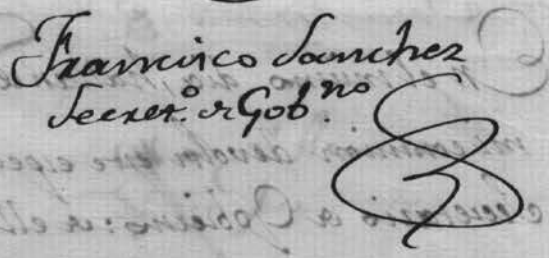 Francisco Sanchez
Secret.º de Gob.no